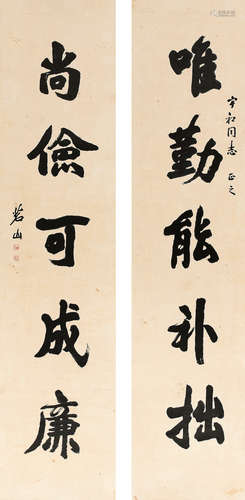 唯勤能补拙
宇和同志 正之
尚儉可成廉
茗山